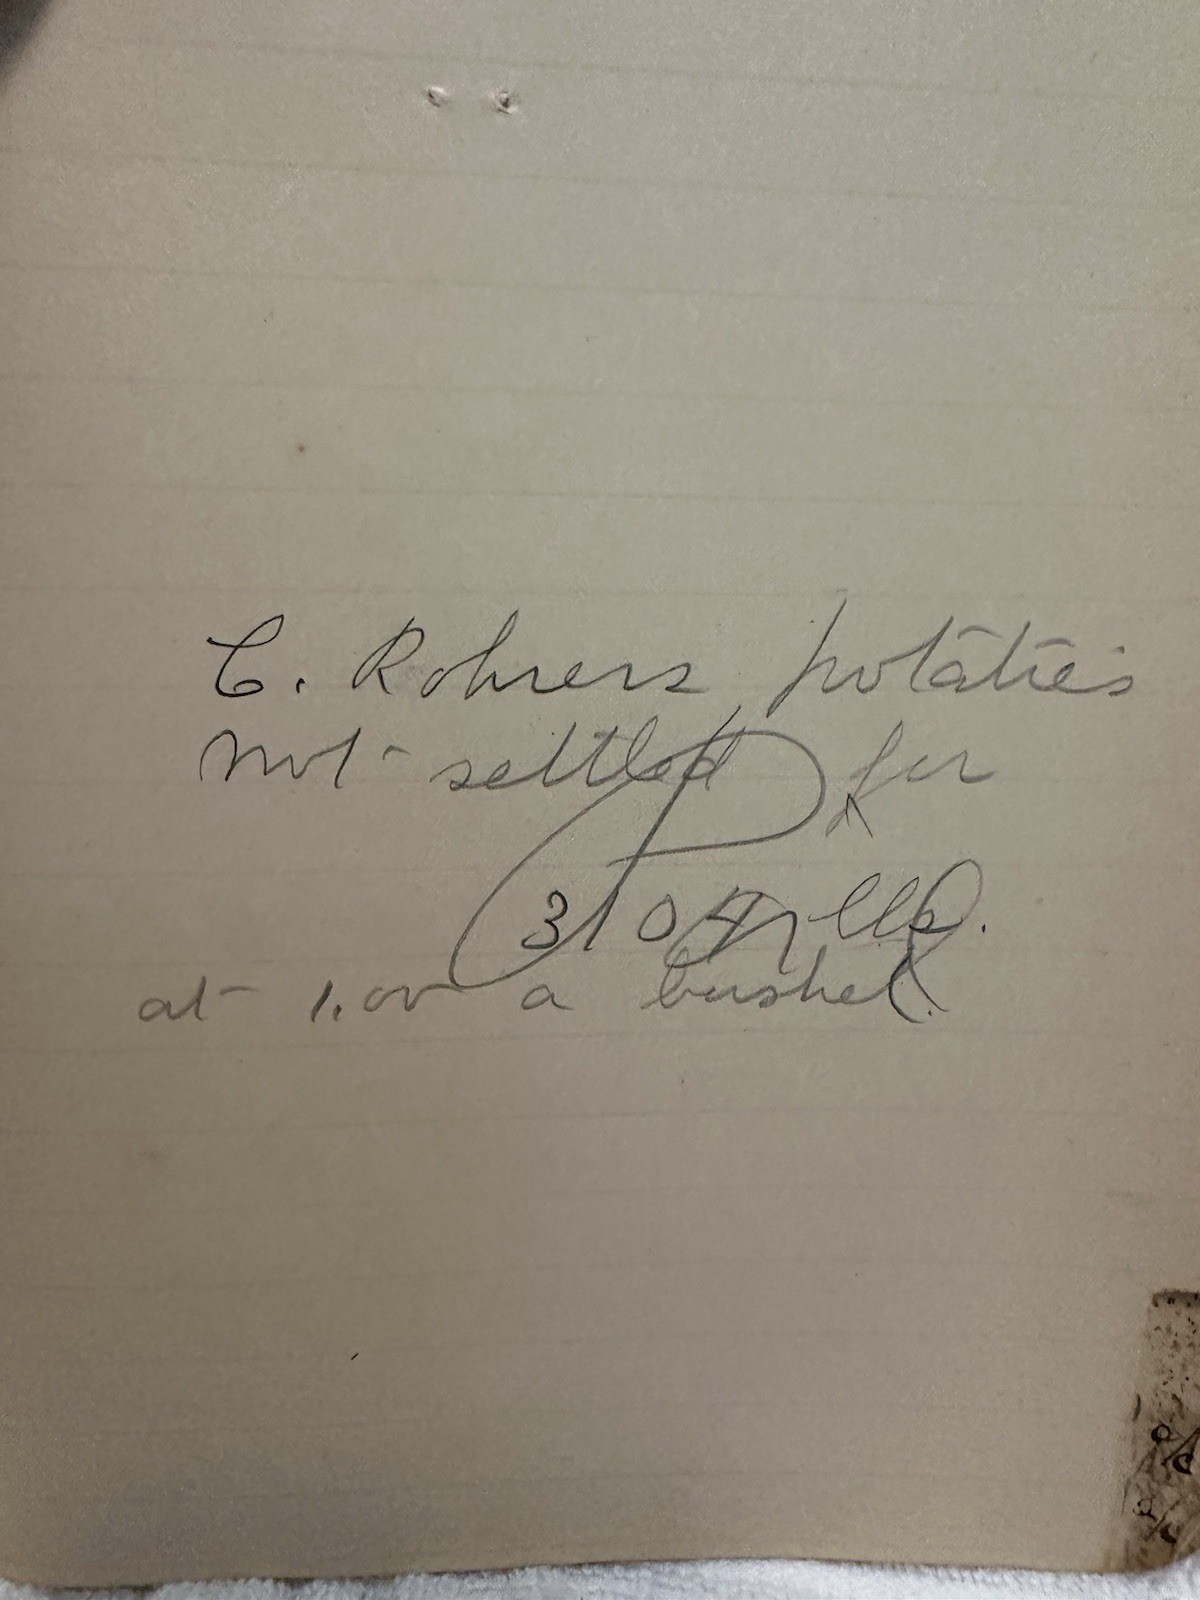 C. Rohrers potaties
not settled for
3104 lbs.
at 1.00 a bushel.